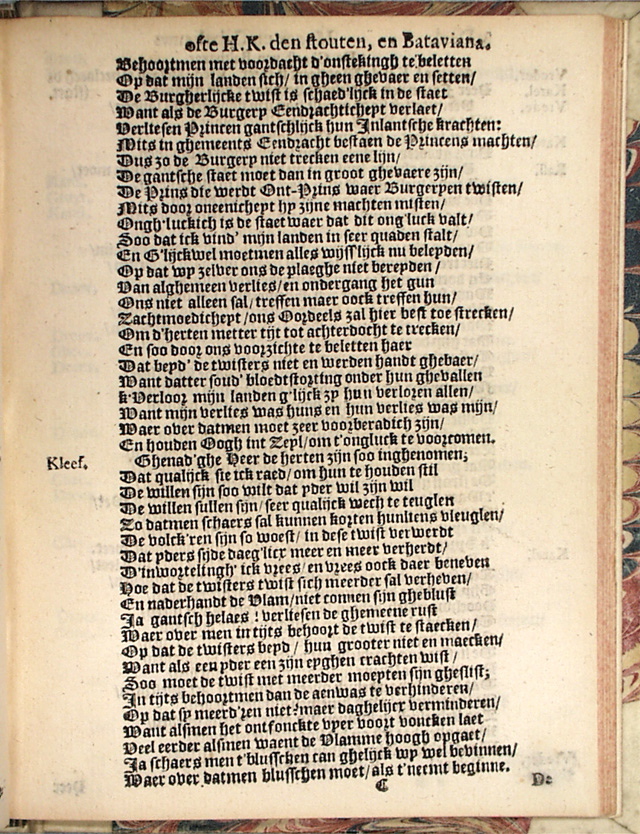 ofte H.K. den stouten, en Bataviana.
Behoortmen met voordacht d'onstekingh te beletten
Op dat mijn landen sich/ in gheen ghevaer en setten/
De Burgherlijcke twist is schaed'lijck in de staet
Want als de Burgery Eendrachticheyt verlaet/
Verliesen Princen gantschlijck hun Inlantsche krachten:
Mits in ghemeents Eendracht bestaen de Princens machten/
Dus zo de Burgery niet trecken eene lijn/
De gantsche staet moet dan in groot ghevaere zijn/
De Prins die werdt Ont-Prins waer Burgeryen twisten/
Mits door oneenicheyt hy zijne machten misten/
Ongh'luckich is de staet waer dat dit ong'luck valt/
Soo dat ick vind' mijn landen in seer quaden stalt/
En G'lijckwel moetmen alles wijss'lijck nu beleyden/
Op dat wy zelver ons de plaeghe niet bereyden/
Van alghemeen verlies/ en ondergang het gun
Ons niet alleen sal/ treffen maer oock treffen hun/
Zachtmoedicheyt/ ons Oordeels zal hier best toe strecken/
Om d'herten metter tijt tot achterdocht te trecken/
En soo door ons voorzichte te beletten haer
Dat beyd' de twisters niet en werden handt ghebaer/
Want datter soud' bloedtstorting onder hun ghevallen
k'Verloor mijn landen g'lijck zy hun verloren allen/
Want mijn verlies was huns en hun verlies was mijn/
Waer over datmen moet zeer voorberadich zijn/
En houden Oogh int Zeyl/ om t'ongluck te voorcomen.
Kleef. Ghenad'ghe Heer de herten zijn soo inghenomen;
Dat qualijck sie ick raed/ om hun te houden stil
De willen sijn soo wilt dat yder wil zijn wil
De willen sullen sijn/ seer qualijck wech te teuglen
Zo datmen schaers sal kunnen korten hunliens vleuglen/
De volck'ren sijn so woest/ in dese twist verwerdt
Dat yders sijde daeg'licx meer en meer verherdt/
D'inwortelingh' ick vrees/ en vrees oock daer beneven
Hoe dat de twisters twist sich meerder sal verheven/
En naderhandt de Vlam/ niet connen sijn gheblust
Ja gantsch helaes! verliesen de ghemeene rust
Waer over men in tijts behoort de twist te staecken/
Op dat de twisters beyd/ hun grooter niet en maecken/
Want als een yder een zijn eyghen crachten wist/
Soo moet de twist met meerder moeyten sijn gheslist;
In tijts behoortmen dan de aenwas te verhinderen/
Op dat sy meerd'ren niet: maer daghelijcx verminderen/
Want alsmen het ontfonckte vyer voort voncken laet
Veel eerder alsmen waent de Vlamme hoogh opgaet/
Ja schaers men t'blusschen can ghelijck wy wel bevinnen/
Waer over datmen blusschen moet/ als t'neemt beginne.
C
De